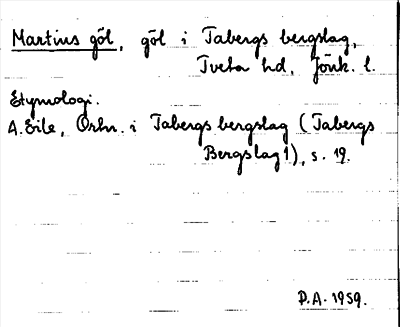 Martins göl, göl i Tabergs bergslag,
Tveta hd, Jönk. l.
Etymologi.
A. Eile, Ortn. i Tabergs bergslag (Tabergs
Bergslag 1), s. 19.
P.A. 1959.